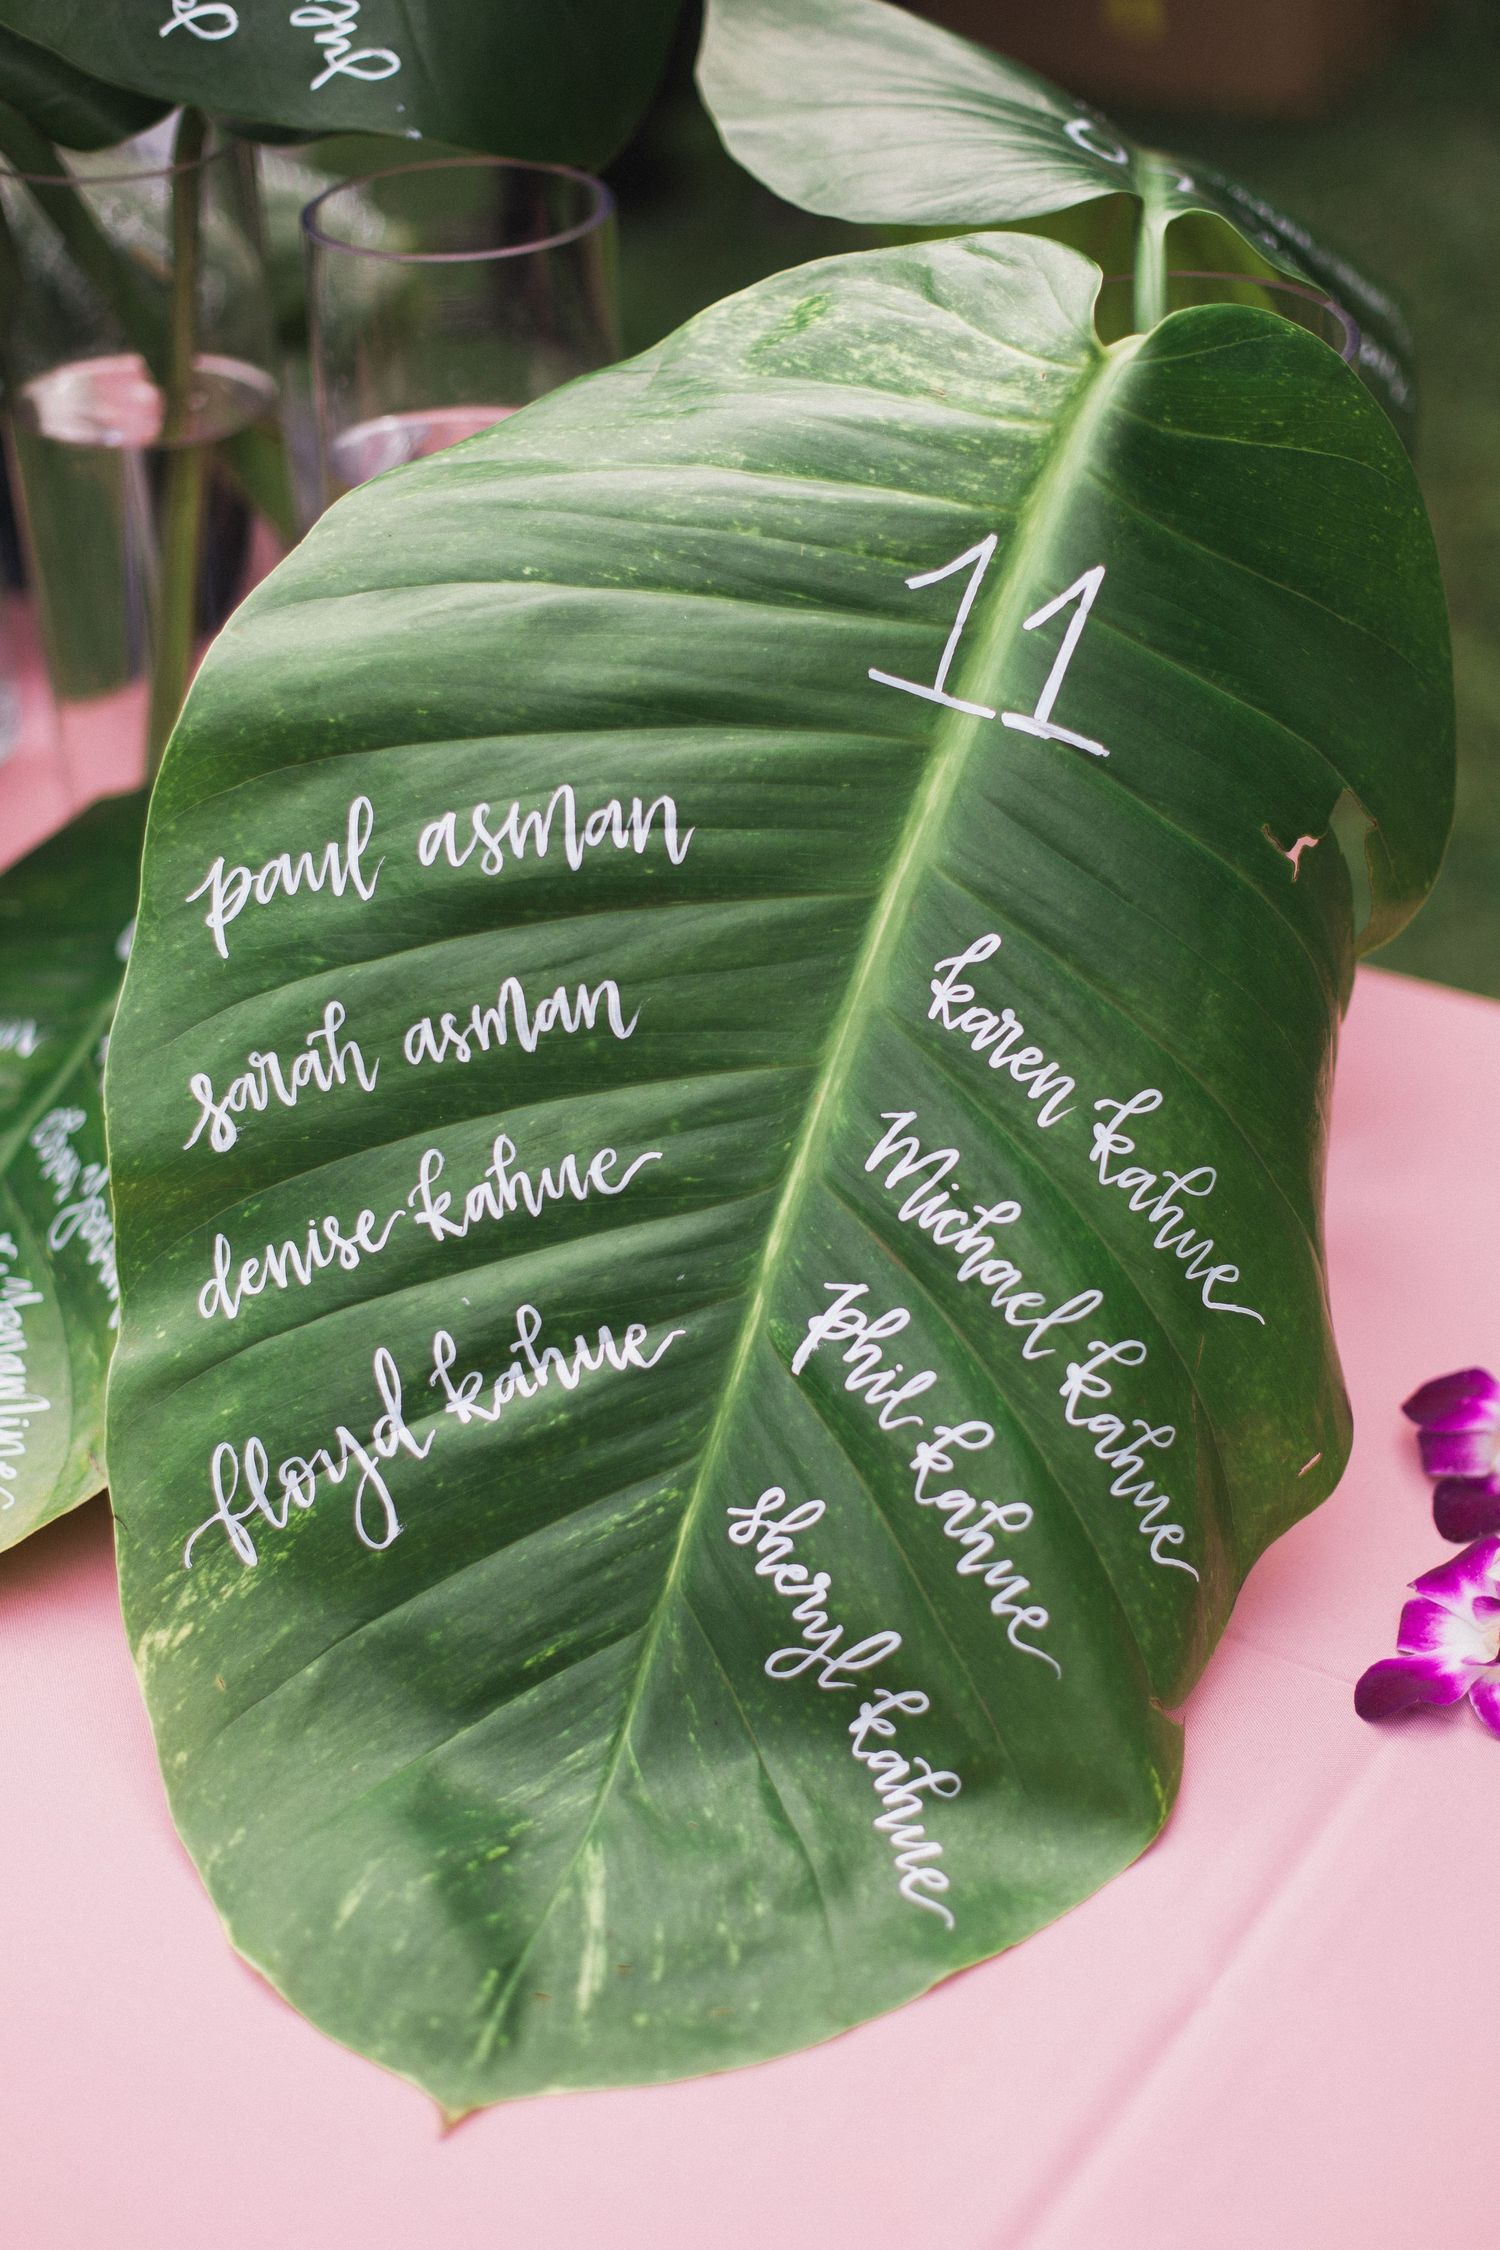 11
paul asman
sarah asman
denise kahue
floyd kahue
karen kahue
Michael kahue
phil kahue
sheryl kahue